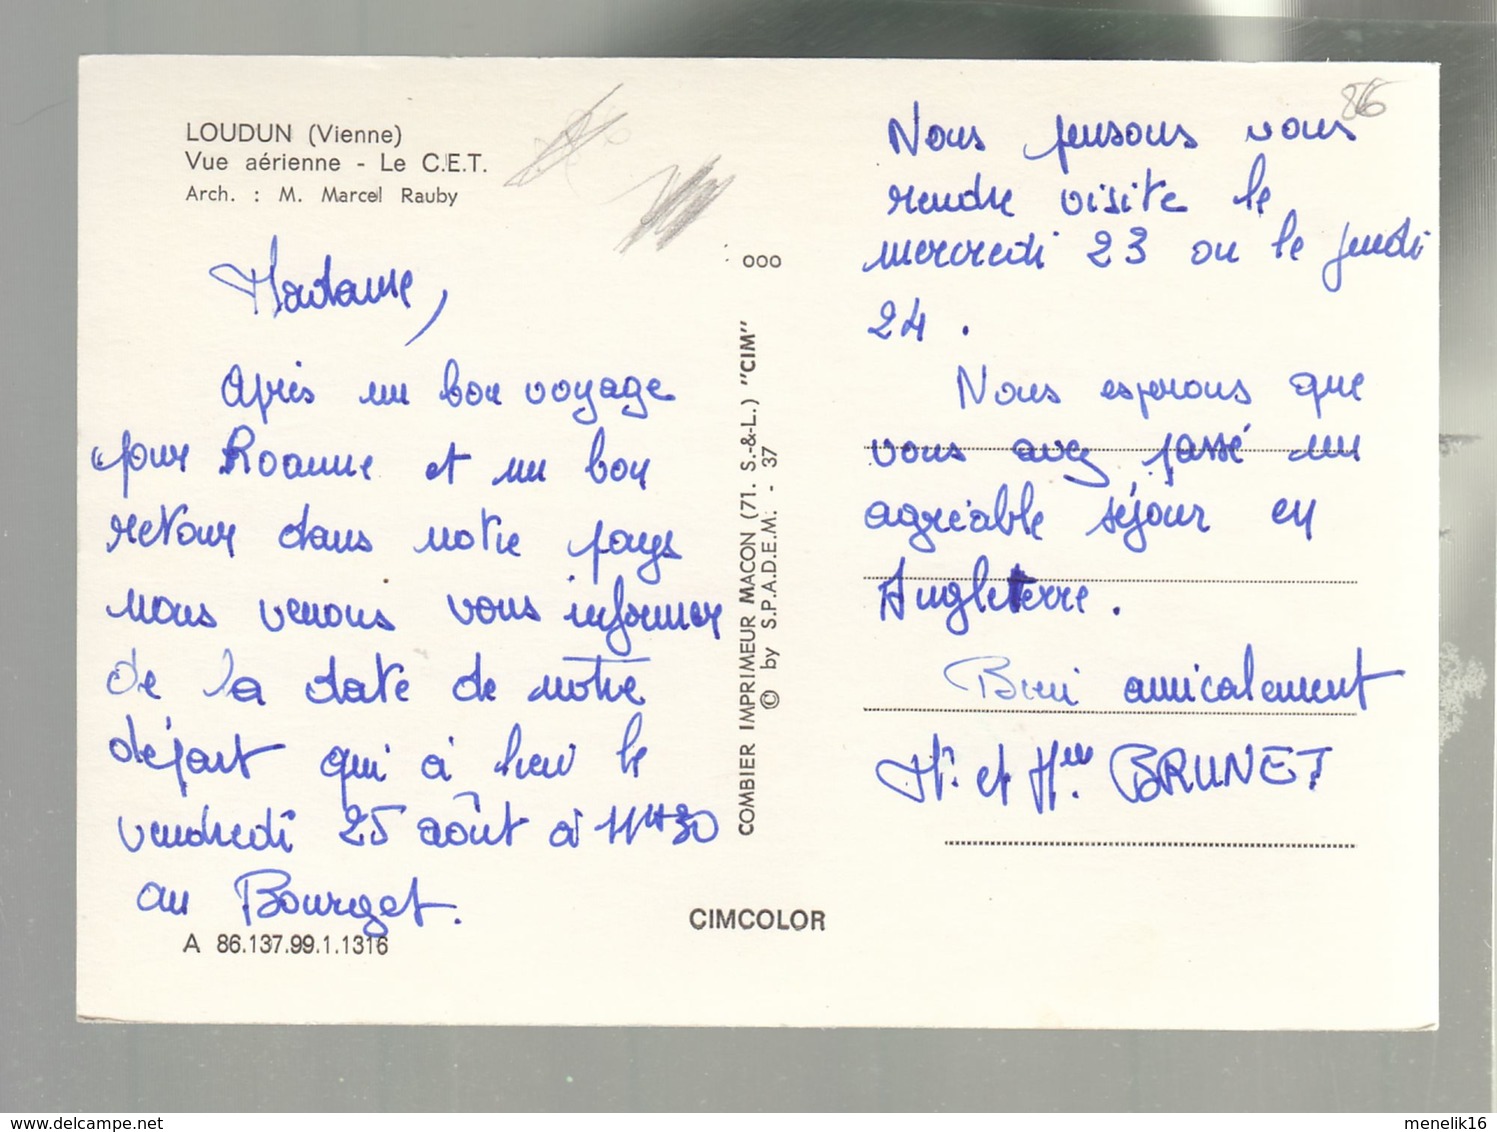 LOUDUN (Vienne)
Vue aérienne - Le C.E.T.
Arch. : M. Marcel Rauby
Madame,
Après un bon voyage
pour Roanne et un bon
retour dans notre pays
nous venons vous informer
de la date de notre
départ qui à lieu le
vendredi 25 août à 11H30
au Bourget.
A 86.137.99.1.1316
ooo
COMBIER IMPRIMEUR MACON (71. S.-&-L.) "CIM"
© by S.P.A.D.E.M. - 37
CIMCOLOR
86
Nous pensons vous
rendre visite le
mercredi 23 ou le jeudi
24.
Nous esperons que
vous avez passé un
agréable séjour en
Angleterre.
Bien amicalement
Mr et Mme BRUNET
delcampe.net
menelik16